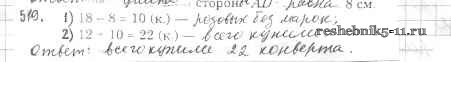 стороны AD равна 8 см.
519. 1) 18 - 8 = 10 (к.) — розовых без марок;
2) 12 + 10 = 22 (к.) — всего купили
reshebnik5-11.ru
Ответ: всего купили 22 конверта.